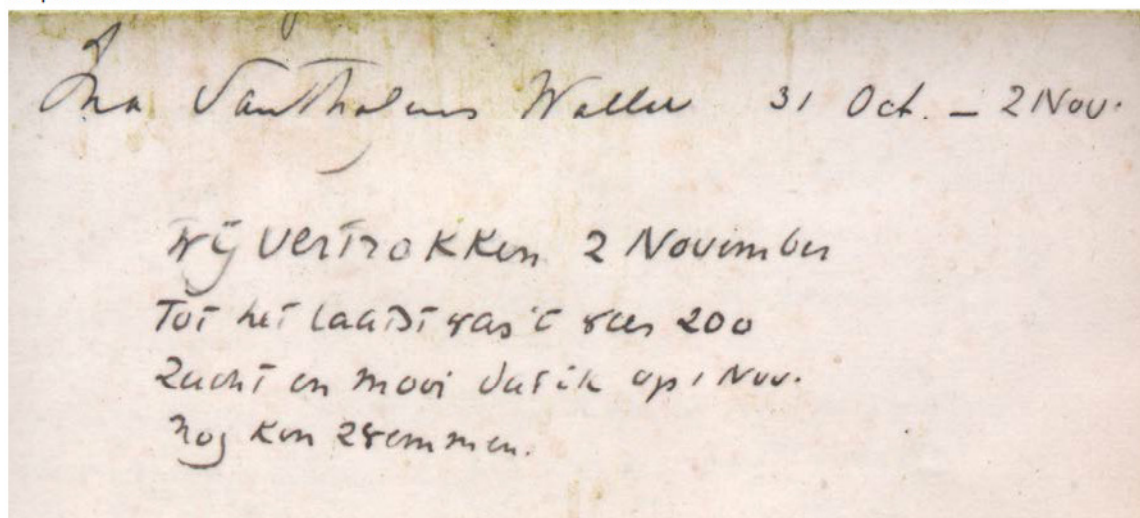 Ina Van Thalmus Waller 31 Oct. – 2 Nov.
Wij vertrokken 2 November
Tot het laatst was 't weer zoo
zacht en mooi dat ik op 1 Nov.
nog kon zwemmen.